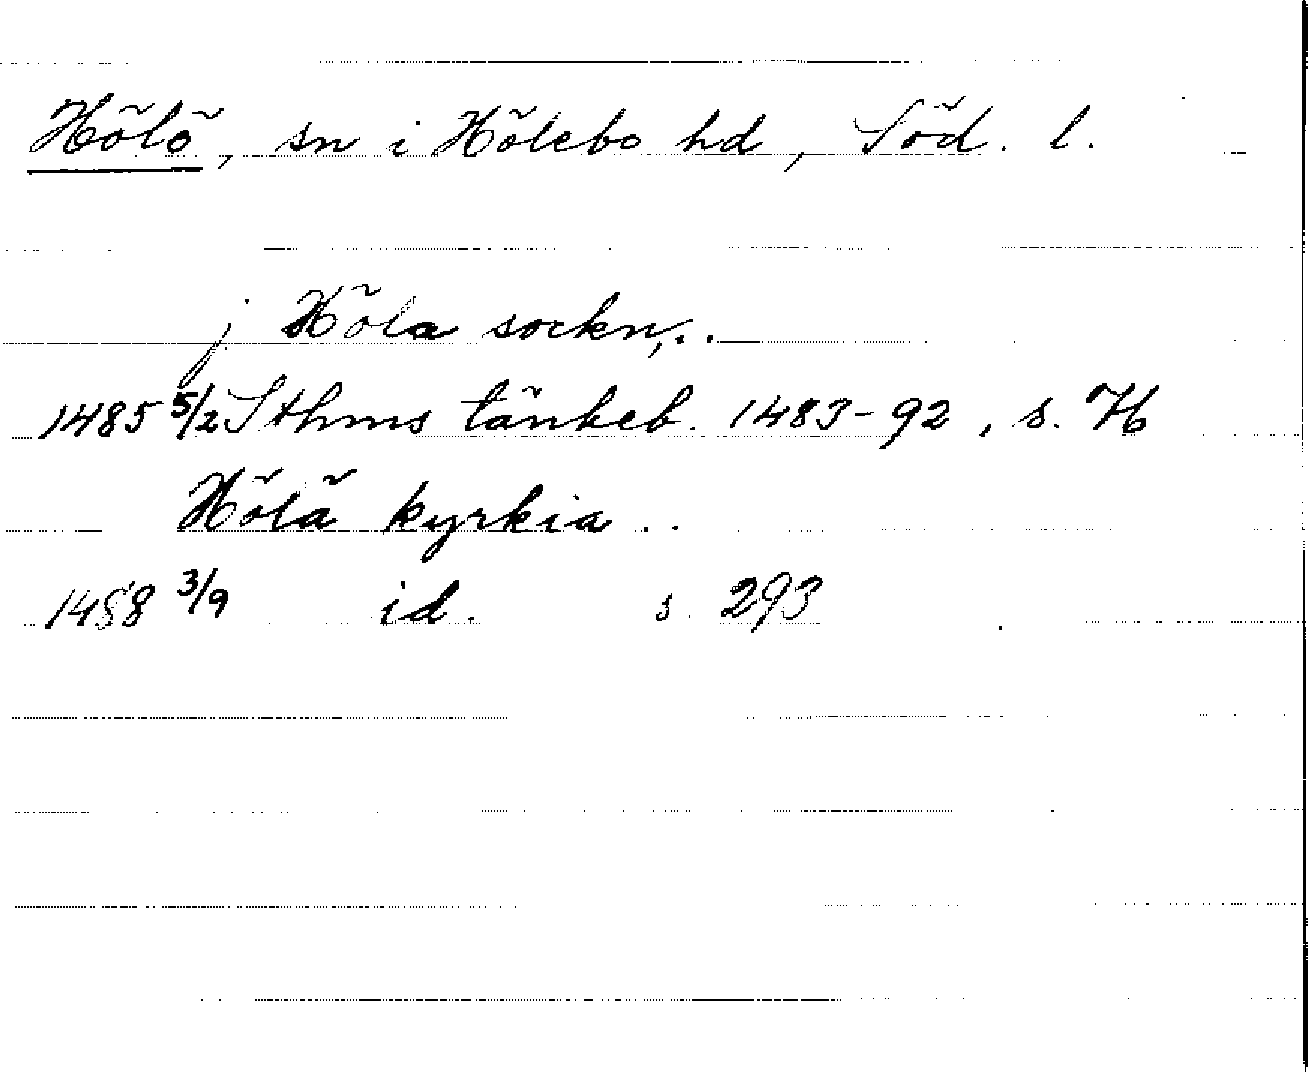 Hölö, sn i Hölebo hd, Söd. l.
j Höla sockn, . .
1485 5/2 Sthms tänkeb. 1483-92, s. 76
Hölä kyrkia . .
1488 3/9 id. s. 293